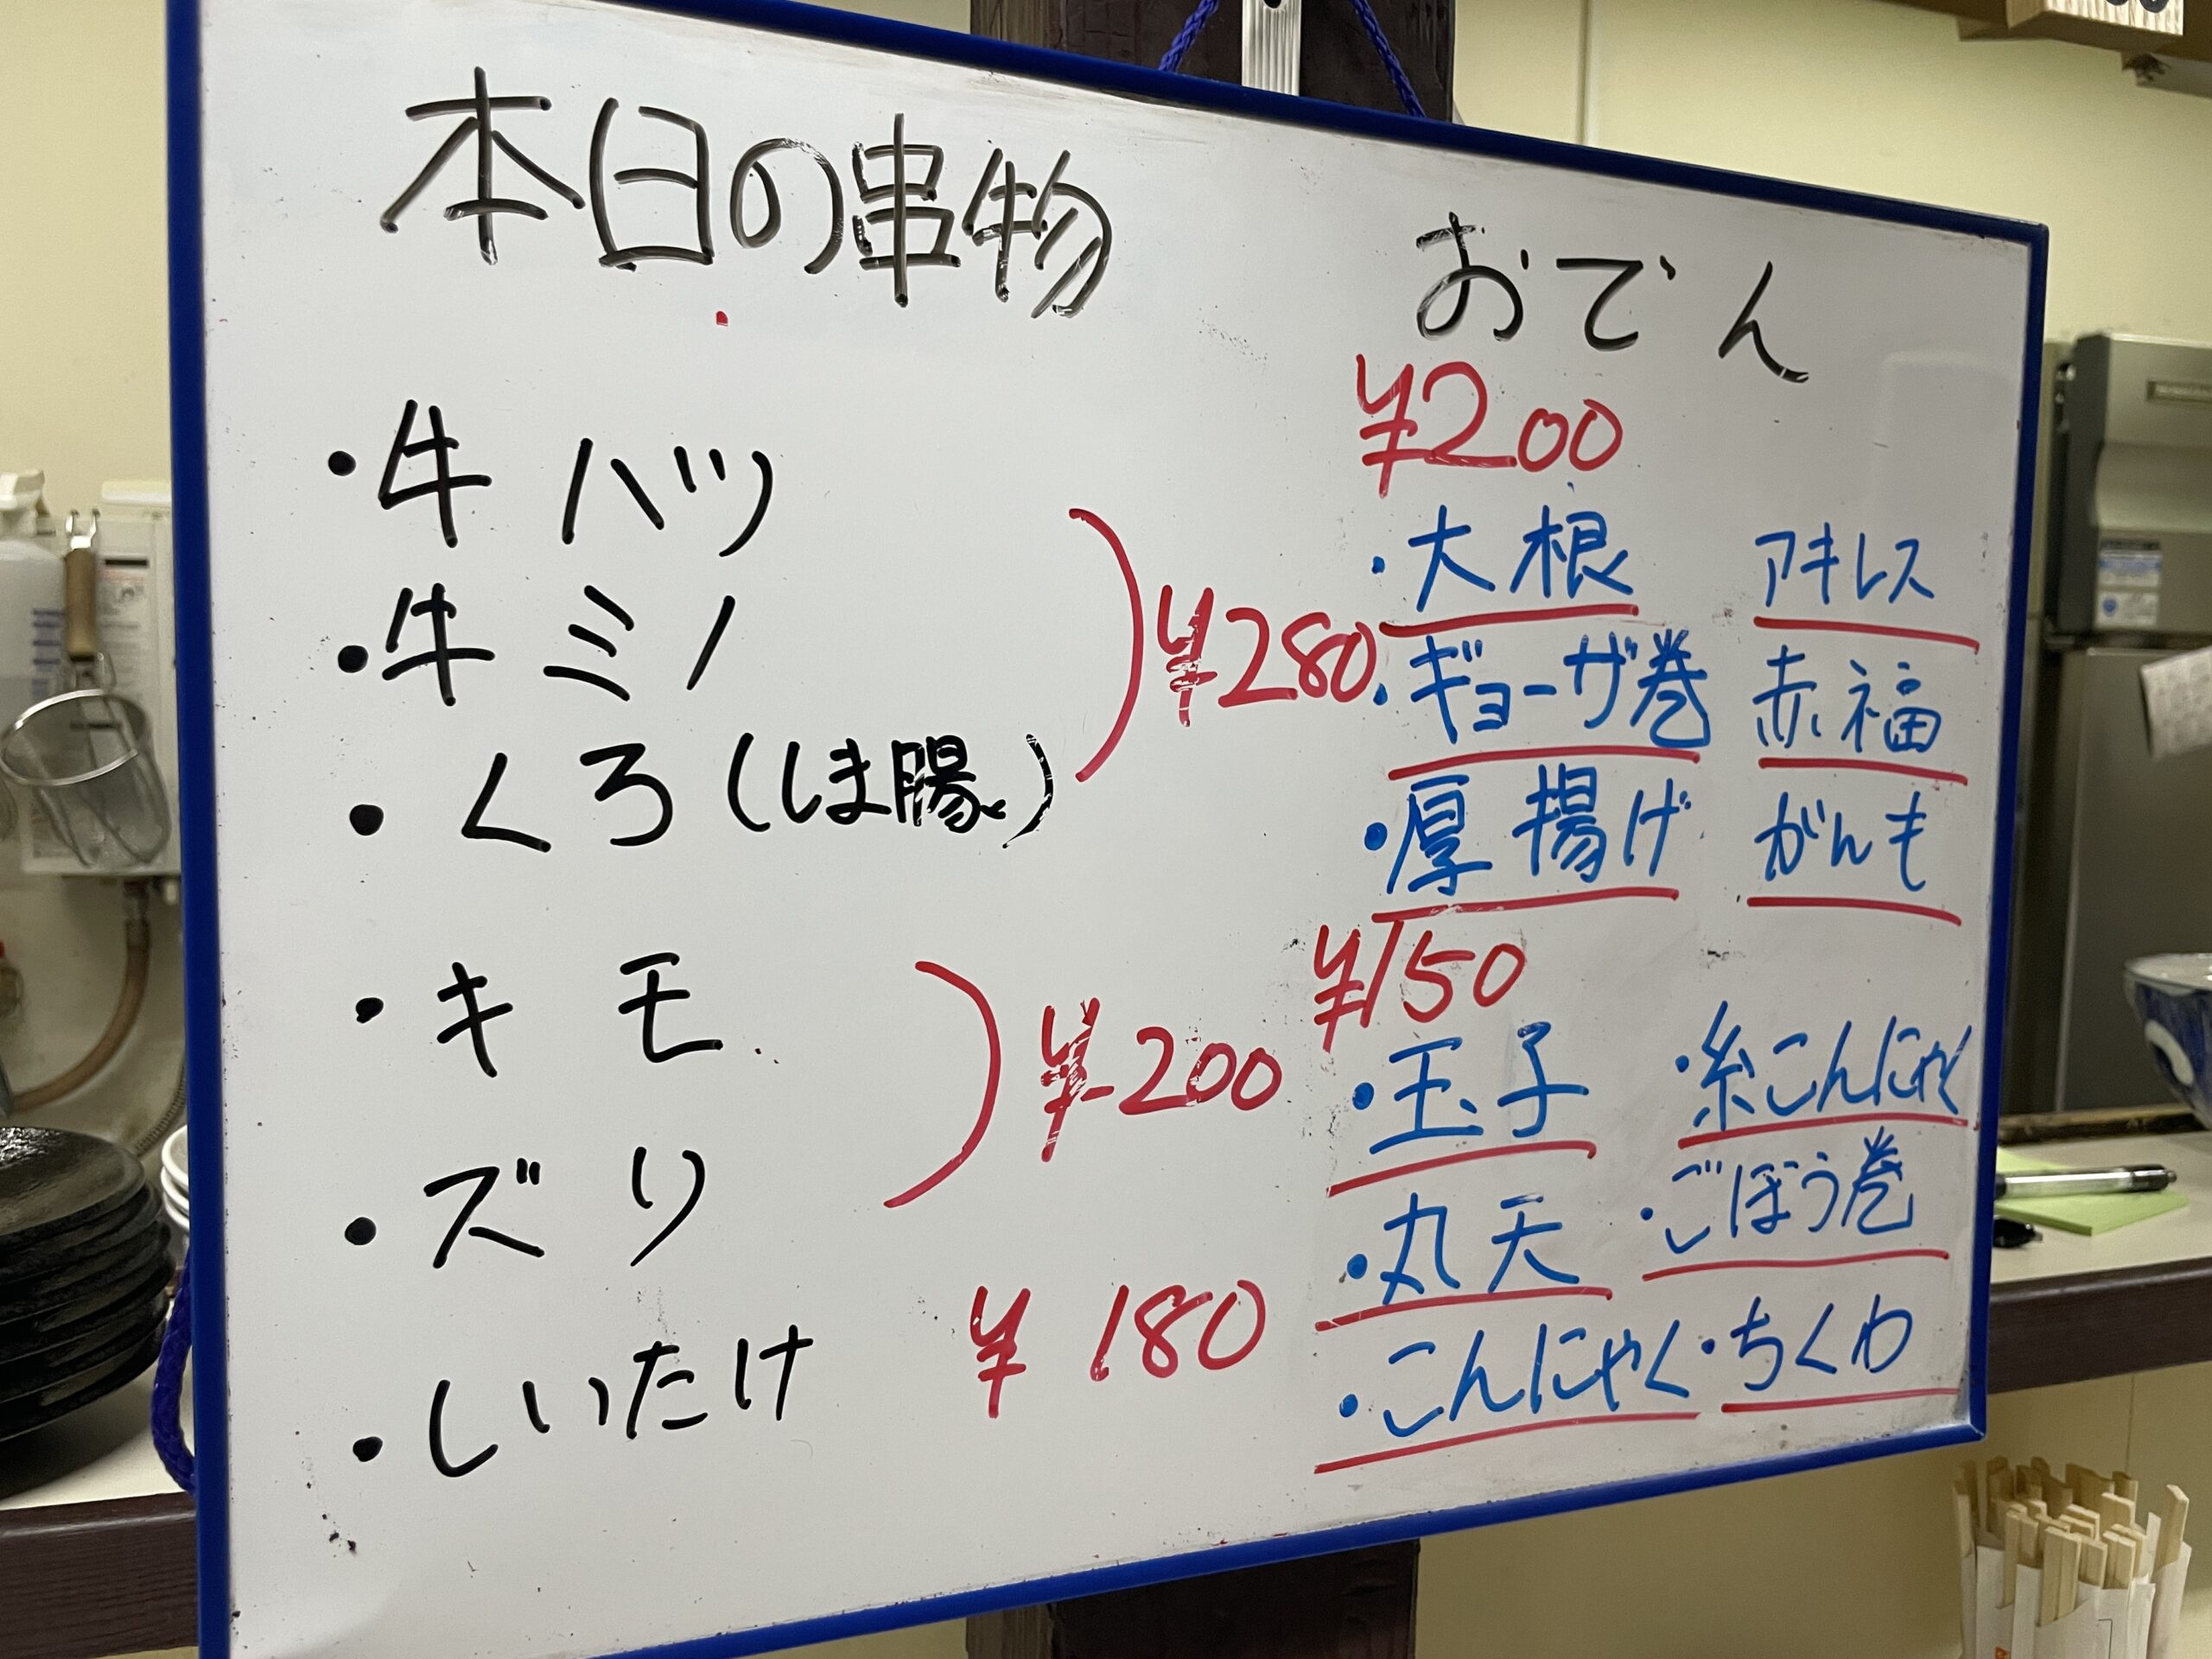 本日の串物
・牛ハツ
・牛ミノ
・くろ(しま腸)
¥280
・キモ
・ズリ
¥200
・しいたけ
¥180
おでん
¥200
・大根 アキレス
・ギョーザ巻 赤福
・厚揚げ がんも
¥150
・玉子 ・糸こんにゃく
・丸天 ・ごぼう巻
・こんにゃく ・ちくわ